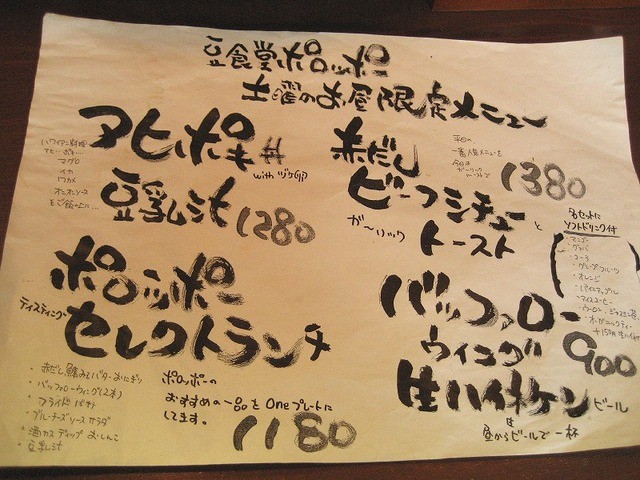 豆食堂ポロッポー
土曜のお昼限定メニュー
アヒポキ丼
with
豆乳汁 1280
ハワイアン料理
マグロ
イカ
ワカメ
オニオンソース
をご飯の上に…
赤だし
ビーフシチュー
と
ガーリック
トースト
1380
平日の
一番人気メニューを
各セットに
ソフトドリンク付
マンゴー
グァバ
コーラ
グレープフルーツ
オレンジ
パイナップル
アイスコーヒー
ポロッポー
テイスティング・
セレクトランチ
・赤だし
・バッファローウィング(2本)
・フライドパオ
・ブルーチーズソースサラダ
・酒カスディップおしんこ
・豆乳汁
ポロッポーの
おすすめの一品をOneプレートに
してます。
1180
バッファロー
ウィング
900
生ハイネケン ビール
昼からビールで一杯